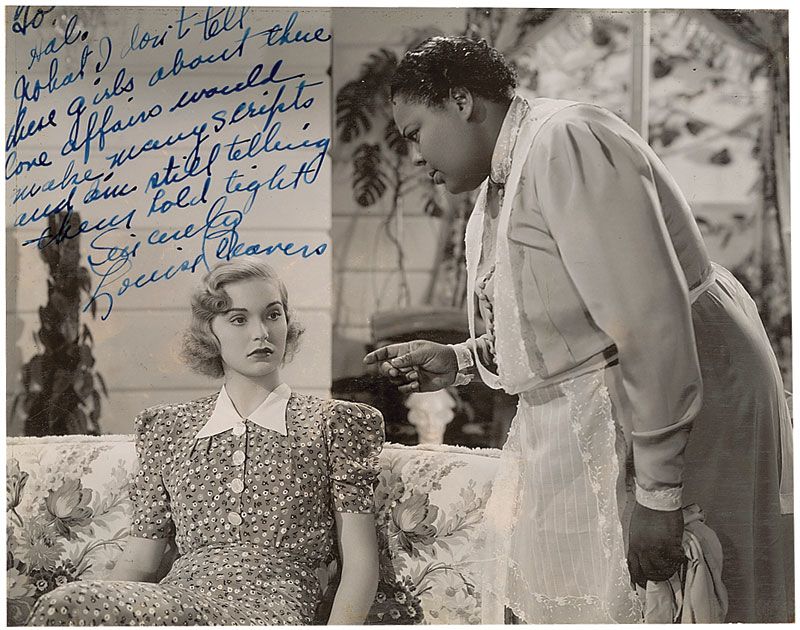 To.
Hal.
What I don't tell
these girls about there
love affairs would
make many scripts
and I'm still telling
them hold tight
Sincerely
Louise Beavers